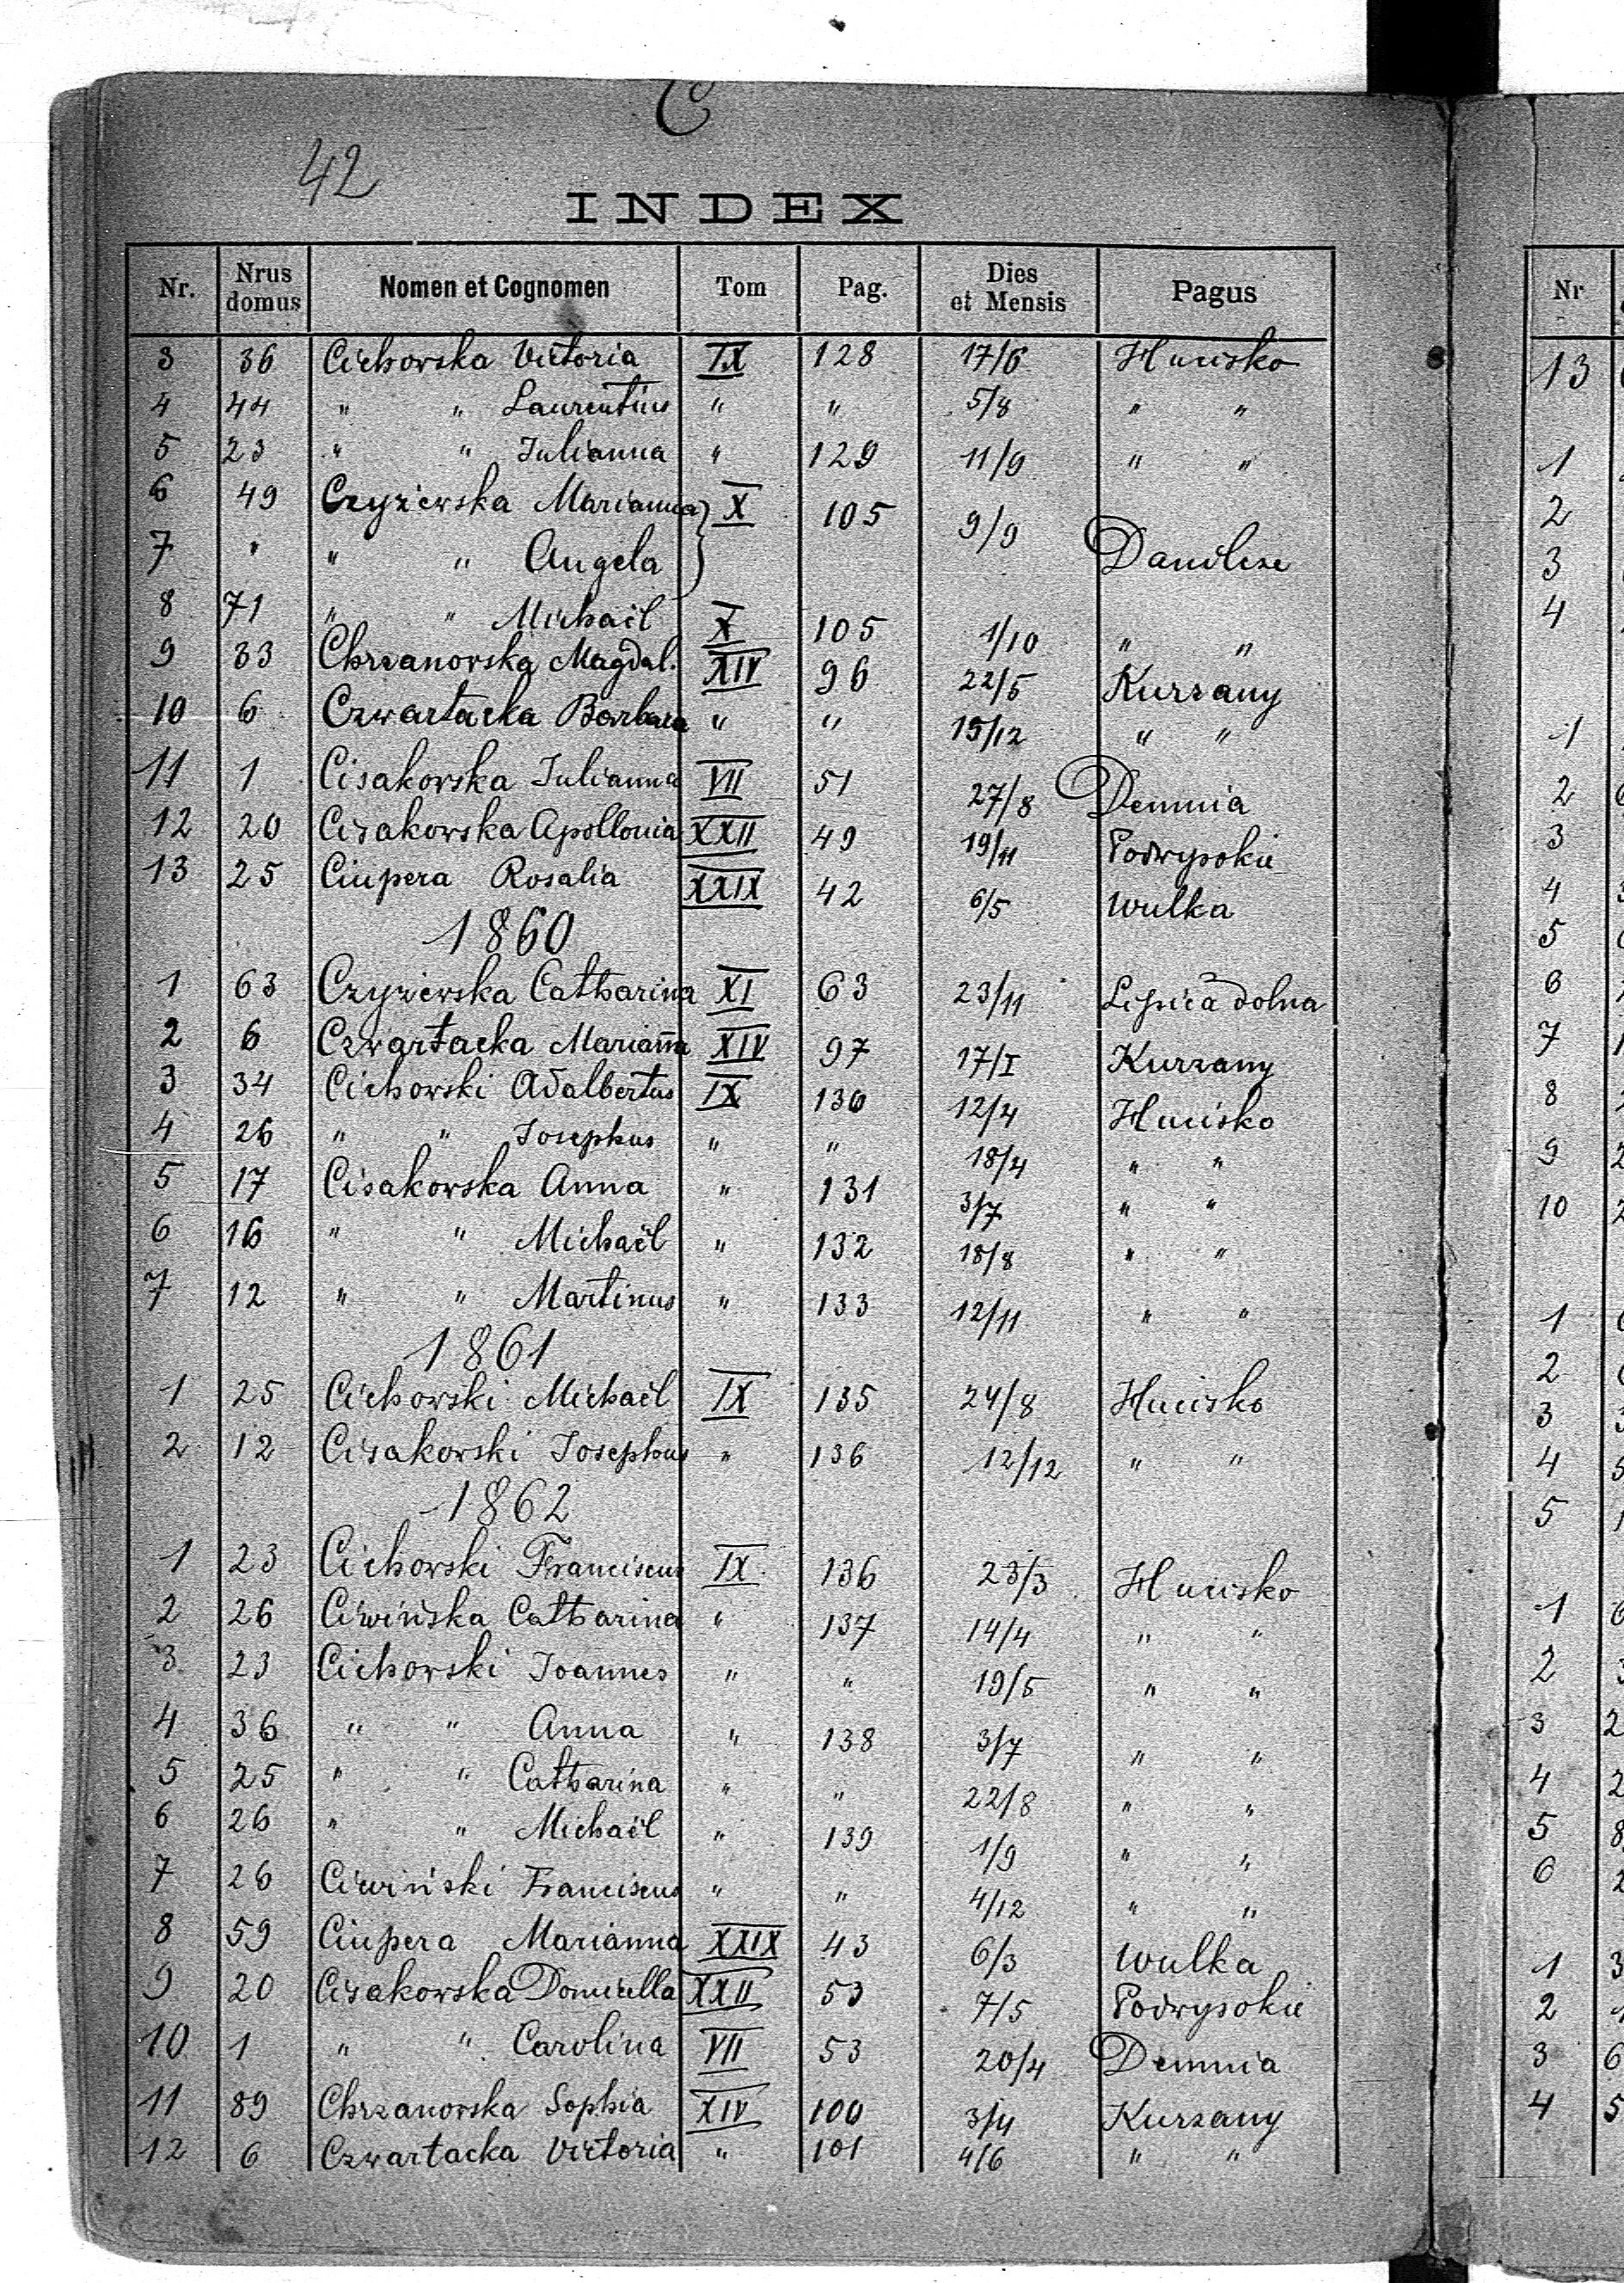 C
42
INDEX
Nr. Nrus domus Nomen et Cognomen Tom Pag. Dies et Mensis Pagus
3 36 Cichowska Victoria IX 128 17/6 Hucisko
4 44 " " Laurentius " " 5/8 " "
5 23 " " Julianna " 129 11/9 " "
6 49 Czyżewska Marianna } X 105 9/9
7 " " " Angela } Danilcze
8 71 " " Michaël X 105 1/10 " "
9 33 Chrzanowska Magdal. XIV 96 22/5 Kurzany
10 6 Czwartacka Barbara " " 15/12 " "
11 1 Cisakowska Julianna VII 51 27/8 Demnia
12 20 Cisakowska Apollonia XXII 49 19/11 Podwysokie
13 25 Ciupera Rosalia XXIX 42 6/5 Wulka
1860
1 63 Czyżewska Catharina XI 63 23/11 Lipica dolna
2 6 Czwartacka Marianna XIV 97 17/I Kurzany
3 34 Cichowski Adalbertus IX 130 12/4 Hucisko
4 26 " " Josephus " " 18/4 " "
5 17 Cisakowska Anna " 131 3/7 " "
6 16 " " Michaël " 132 18/8 " "
7 12 " " Martinus " 133 12/11 " "
1861
1 25 Cichowski Michaël IX 135 24/8 Hucisko
2 12 Cisakowski Josephus " 136 12/12 " "
1862
1 23 Cichowski Franciscus IX 136 23/3 Hucisko
2 26 Ciwińska Catharina " 137 14/4 " "
3 23 Cichowski Joannes " " 19/5 " "
4 36 " " Anna " 138 3/7 " "
5 25 " " Catharina " " 22/8 " "
6 26 " " Michaël " 139 1/9 " "
7 26 Ciwiński Franciscus " " 4/12 " "
8 59 Ciupera Marianna XXIX 43 6/3 Wulka
9 20 Cisakowska Domicella XXII 53 7/5 Podwysokie
10 1 " " Carolina VII 53 20/4 Demnia
11 89 Chrzanowska Sophia XIV 100 3/4 Kurzany
12 6 Czwartacka Victoria " 101 4/6 " "
Nr
13
1
2
3
4
1
2
3
4
5
6
7
8
9
10
1
2
3
4
5
1
2
3
4
5
6
1
2
3
4